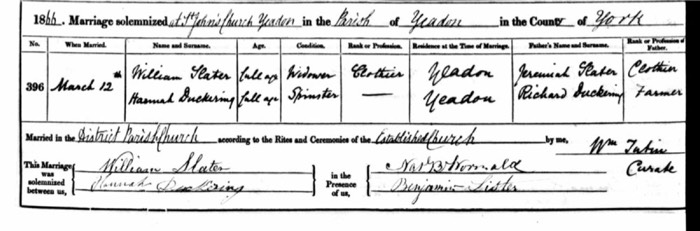 1866. Marriage solemnized at St John's Church Yeadon in the Parish of Yeadon in the County of York
No. When Married. Name and Surname. Age. Condition. Rank or Profession. Residence at the Time of Marriage. Father's Name and Surname. Rank or Profession of Father.
396 March 12th William Slater full age Widower Clothier Yeadon Jeremiah Slater Clothier
Hannah Duckering full age Spinster — Yeadon Richard Duckering Farmer
Married in the District Parish Church according to the Rites and Ceremonies of the Established Church by me, Wm
Curate
This Marriage was solemnized between us, William Slater
Hannah Duckering
in the Presence of us, Wormald
Benjamin Lister